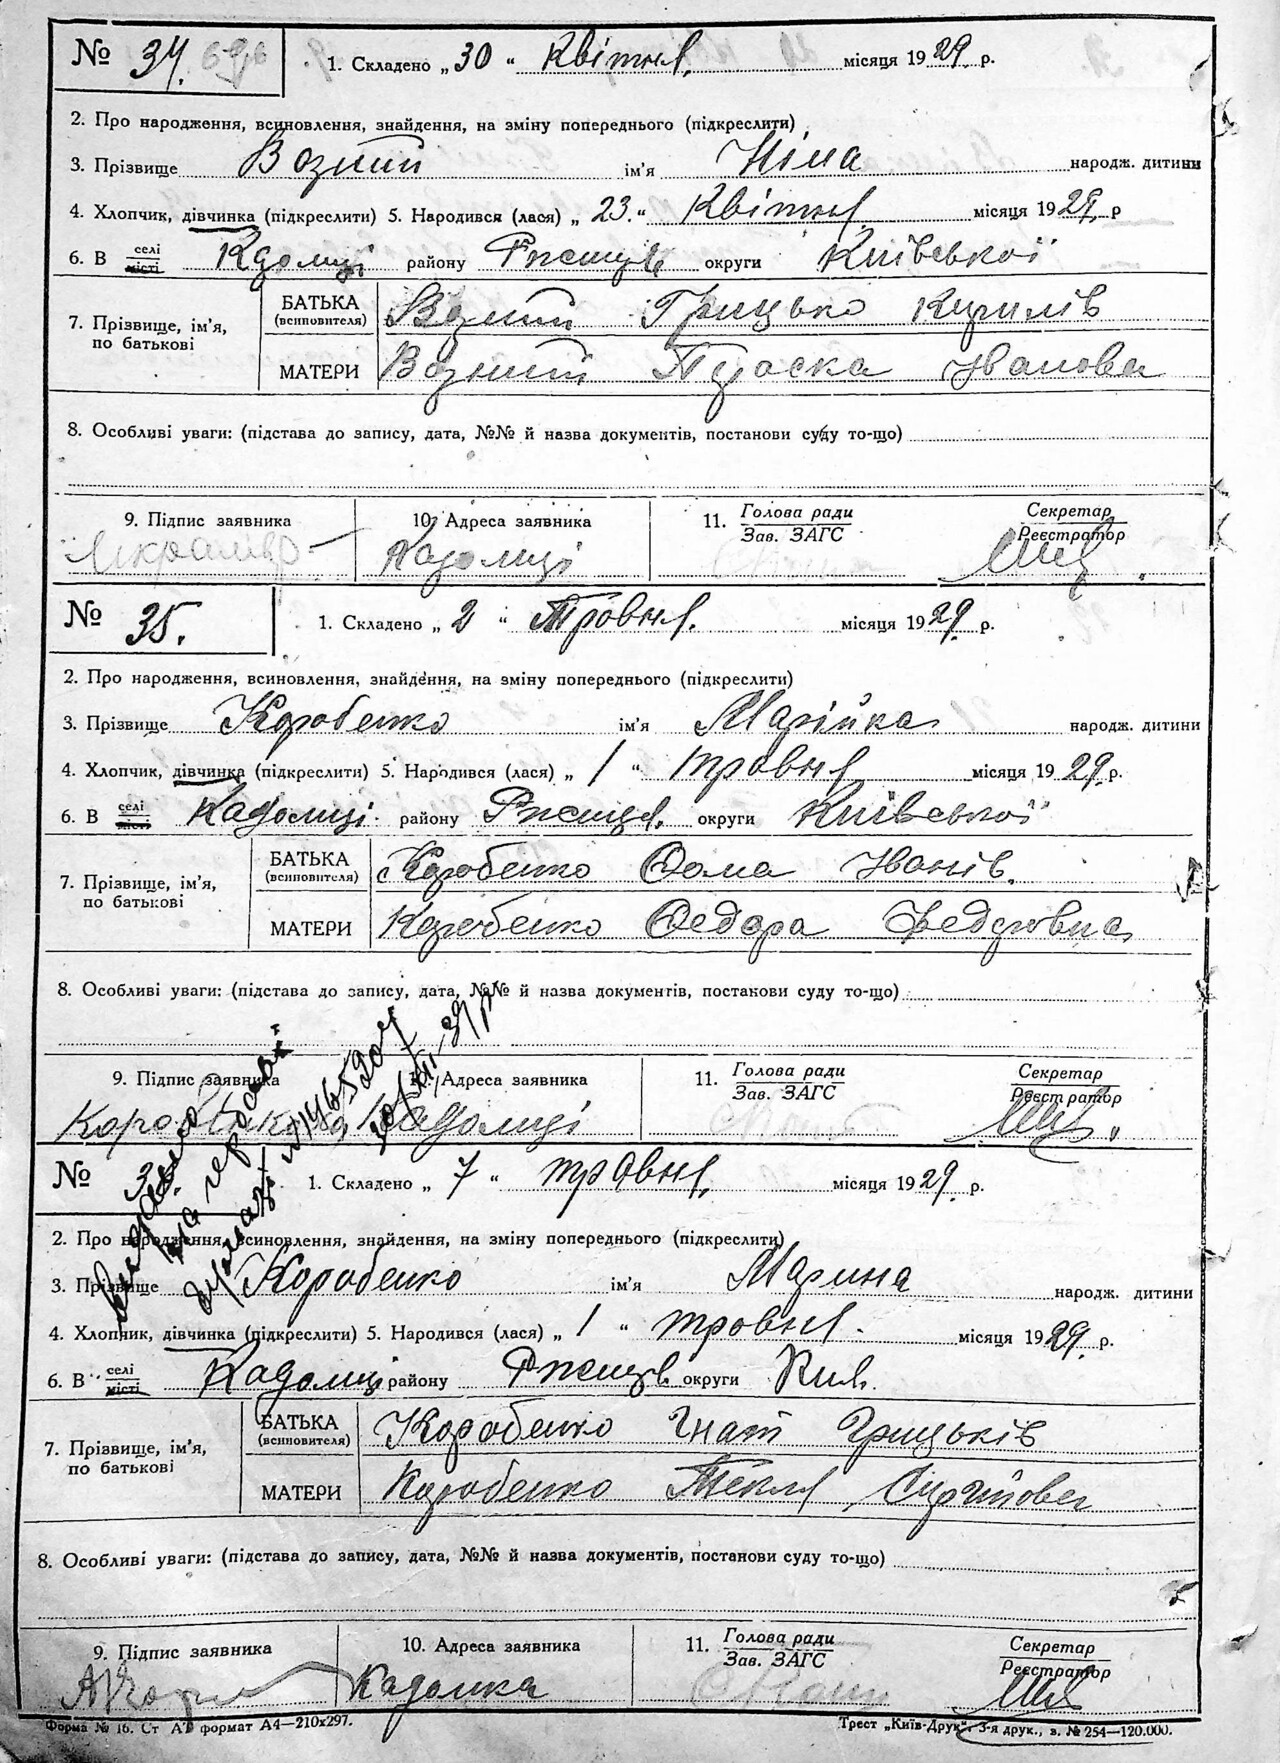 № 34. 1. Складено „ 30 “ Квітня. місяця 1929. р.
2. Про народження, всиновлення, знайдення, на зміну попереднього (підкреслити)
3. Прізвище Возний ім'я Ніна народж. дитини
4. Хлопчик, дівчинка (підкреслити) 5. Народився (лася) „ 23. “ Квітня місяця 1929. р
6. В селі місті Кадомці району Ржищів округи Київської
7. Прізвище, ім'я, по батькові
БАТЬКА (всиновителя) Возний Грицько Кирилів
МАТЕРИ Возний Параска Иванова
8. Особливі уваги: (підстава до запису, дата, №№ й назва документів, постанови суду то-що)
9. Підпис заявника 10. Адреса заявника 11. Голова ради Зав. ЗАГС Секретар Реєстратор
Кадомці
№ 35. 1. Складено „ 2 “ Травня. місяця 1929. р.
2. Про народження, всиновлення, знайдення, на зміну попереднього (підкреслити)
3. Прізвище Коробенко ім'я Марійка народж. дитини
4. Хлопчик, дівчинка (підкреслити) 5. Народився (лася) „ 1 “ травня місяця 1929. р.
6. В селі місті Кадомці району Ржищів. округи Київської
7. Прізвище, ім'я, по батькові
БАТЬКА (всиновителя) Коробенко Хома Іванів.
МАТЕРИ Коробенко Федора Федоровна
8. Особливі уваги: (підстава до запису, дата, №№ й назва документів, постанови суду то-що)
9. Підпис заявника 10. Адреса заявника 11. Голова ради Зав. ЗАГС Секретар Реєстратор
Коробенко Кадомці
№ 36. 1. Складено „ 7 “ травня. місяця 1929. р.
2. Про народження, всиновлення, знайдення, на зміну попереднього (підкреслити)
3. Прізвище Коробенко ім'я Марина народж. дитини
4. Хлопчик, дівчинка (підкреслити) 5. Народився (лася) „ 1 “ травня. місяця 1929. р.
6. В селі місті Кадомці району Ржищів округи Київ.
7. Прізвище, ім'я, по батькові
БАТЬКА (всиновителя) Коробенко Гнат Грицьків
МАТЕРИ Коробенко Текля
8. Особливі уваги: (підстава до запису, дата, №№ й назва документів, постанови суду то-що)
9. Підпис заявника 10. Адреса заявника 11. Голова ради Зав. ЗАГС Секретар Реєстратор
Кадомка
Форма № 16. Ст А7 формат А4—210х297. Трест „Київ-Друк“. 3-я друк., з. № 254—120.000.